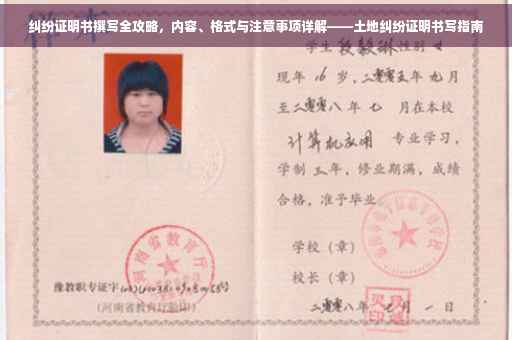 纠纷证明书撰写全攻略，内容、格式与注意事项详解——土地纠纷证明书写指南
学生段毅琳性别女
现年16岁，二零零五年九月
至二零零八年七月在本校
计算机应用 专业学习，
学制三年，修业期满，成绩
合格，准予毕业
学校（章）
校长（章）
豫教职专证字
（河南省教育厅验印）
二零零八年七月一日
河南省教育厅